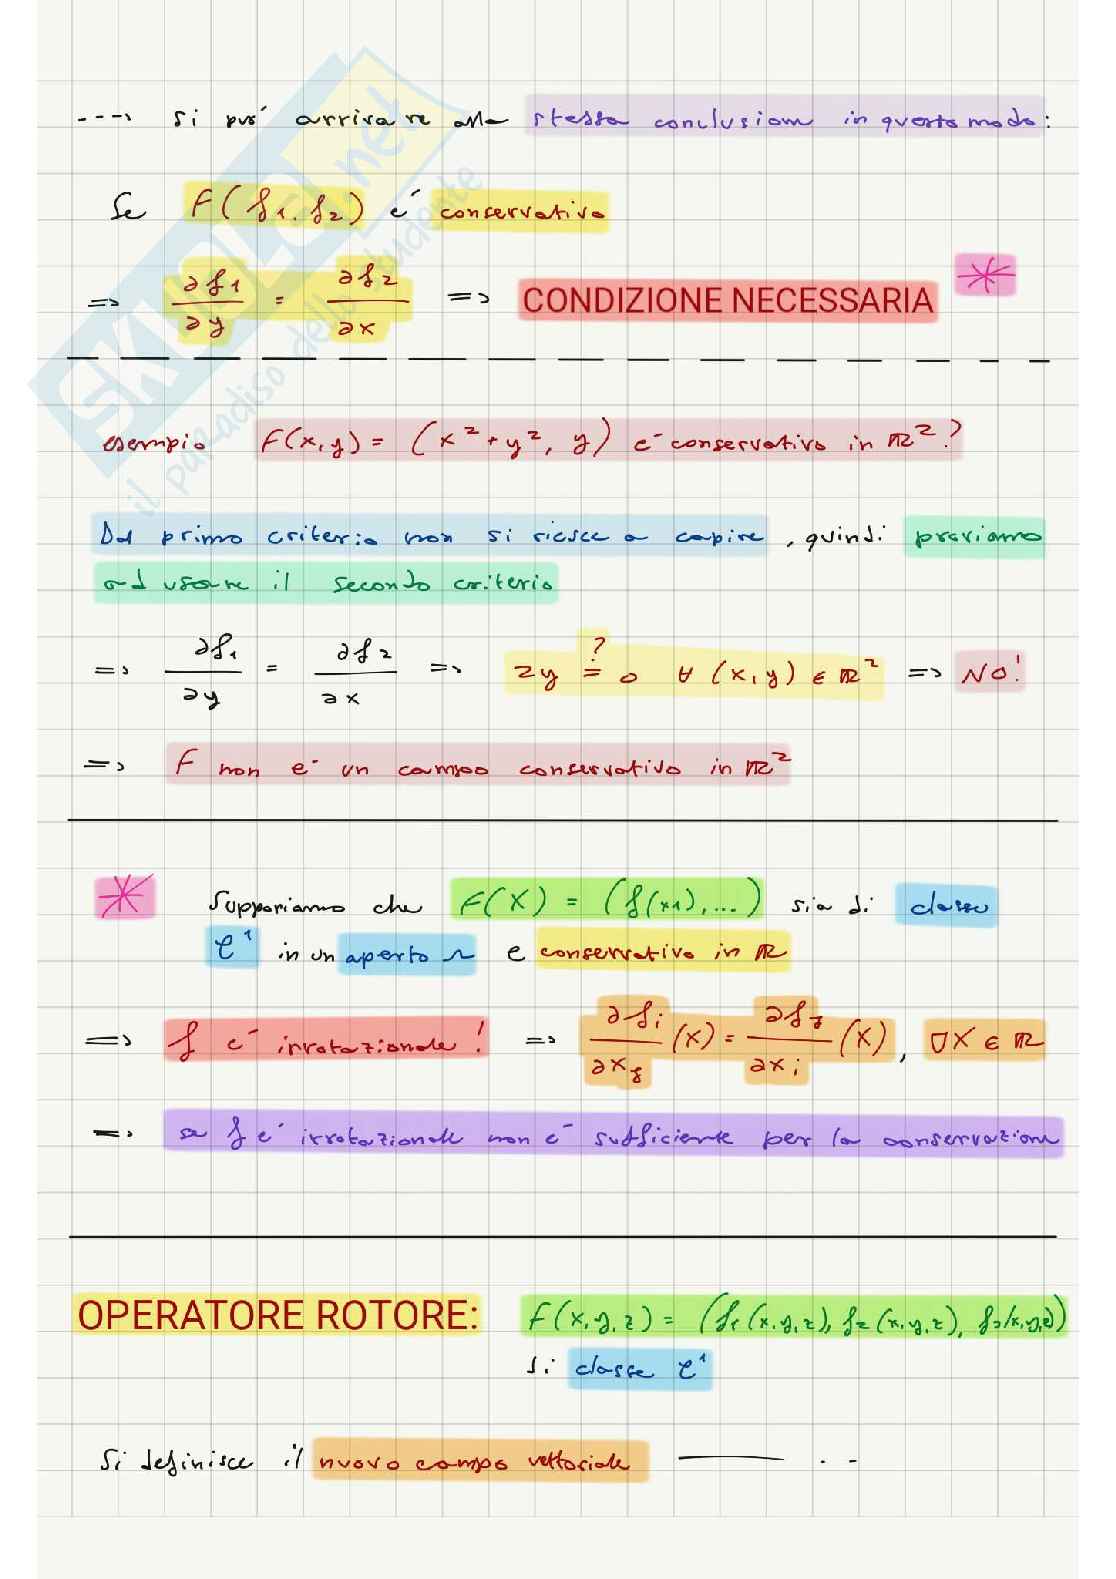 ---> si può arrivare alla stessa conclusione in questo modo:
Se F(f1, f2) e' conservativo
=> ∂f1/∂y = ∂f2/∂x => CONDIZIONE NECESSARIA *
esempio F(x,y) = (x² + y², y) e' conservativo in ℝ²?
Dal primo criterio non si riesce a capire, quindi proviamo
ad usare il secondo criterio
=> ∂f1/∂y = ∂f2/∂x => 2y ?= 0 ∀ (x,y) ∈ ℝ² => NO!
=> F non e' un campo conservativo in ℝ²
* Supponiamo che F(X) = (f(x1),...) sia di classe
C¹ in un aperto Ω e conservativo in ℝ
=> f e' irrotazionale! => ∂fi/∂xj (X) = ∂fj/∂xi (X), ∀X ∈ ℝ
=> se f e' irrotazionale non e' sufficiente per la conservazione
OPERATORE ROTORE: F(x,y,z) = (f1(x,y,z), f2(x,y,z), f3(x,y,z))
di classe C¹
Si definisce il nuovo campo vettoriale —— . . -
SKUOLA.net
il paradiso dello studente